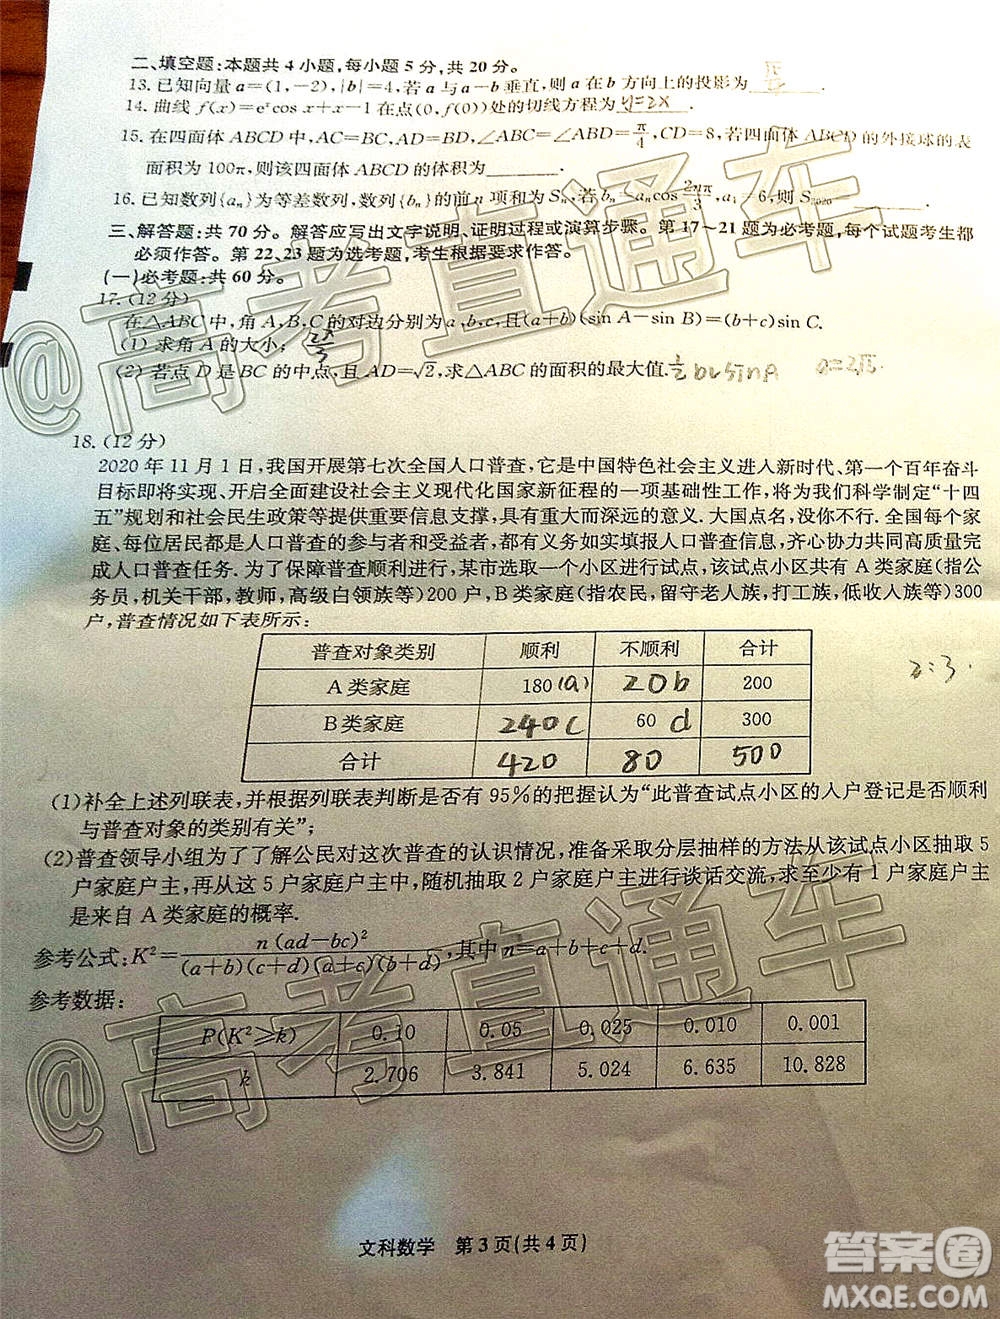 二、填空题:本题共 4 小题,每小题 5 分,共 20 分。
13. 已知向量 a=(1,-2),|b|=4,若 a 与 a-b 垂直,则 a 在 b 方向上的投影为
14. 曲线 f(x)=e^x cos x+x-1 在点(0,f(0))处的切线方程为 y=2x .
15. 在四面体 ABCD 中,AC=BC,AD=BD,∠ABC=∠ABD=π/4,CD=8,若四面体 ABCD 的外接球的表
面积为 100π,则该四面体 ABCD 的体积为______.
16. 已知数列{a_n}为等差数列,数列{b_n}的前 n 项和为 S_n,若 b_n=a_n cos 2nπ/3,a_1=6,则 S_2020=______.
三、解答题:共 70 分。解答应写出文字说明、证明过程或演算步骤。第 17~21 题为必考题,每个试题考生都
必须作答。第 22、23 题为选考题,考生根据要求作答。
(一)必考题:共 60 分。
17. (12 分)
在△ABC 中,角 A,B,C 的对边分别为 a,b,c,且(a+b)(sin A-sin B)=(b+c)sin C.
(1) 求角 A 的大小; 2π/3
(2) 若点 D 是 BC 的中点,且 AD=√2,求△ABC 的面积的最大值. 1/2 bcsinA
18. (12 分)
2020 年 11 月 1 日,我国开展第七次全国人口普查,它是中国特色社会主义进入新时代、第一个百年奋斗
目标即将实现、开启全面建设社会主义现代化国家新征程的一项基础性工作,将为我们科学制定“十四
五”规划和社会民生政策等提供重要信息支撑,具有重大而深远的意义. 大国点名,没你不行. 全国每个家
庭、每位居民都是人口普查的参与者和受益者,都有义务如实填报人口普查信息,齐心协力共同高质量完
成人口普查任务. 为了保障普查顺利进行,某市选取一个小区进行试点,该试点小区共有 A 类家庭(指公
务员,机关干部,教师,高级白领族等)200 户,B 类家庭(指农民,留守老人族,打工族,低收入族等)300
户,普查情况如下表所示:
普查对象类别 顺利 不顺利 合计
A 类家庭 180 (a) 20 b 200
B 类家庭 240 c 60 d 300
合计 420 80 500
2:3.
(1)补全上述列联表,并根据列联表判断是否有 95%的把握认为“此普查试点小区的入户登记是否顺利
与普查对象的类别有关”;
(2)普查领导小组为了了解公民对这次普查的认识情况,准备采取分层抽样的方法从该试点小区抽取 5
户家庭户主,再从这 5 户家庭户主中,随机抽取 2 户家庭户主进行谈话交流,求至少有 1 户家庭户主
是来自 A 类家庭的概率.
参考公式:K²=n(ad-bc)²/(a+b)(c+d)(a+c)(b+d),其中 n=a+b+c+d.
参考数据:
P(K²≥k) 0.10 0.05 0.025 0.010 0.001
k 2.706 3.841 5.024 6.635 10.828
文科数学 第 3 页(共 4 页)
@高考直通车
@高考直通车
答案圈
MXQE.COM